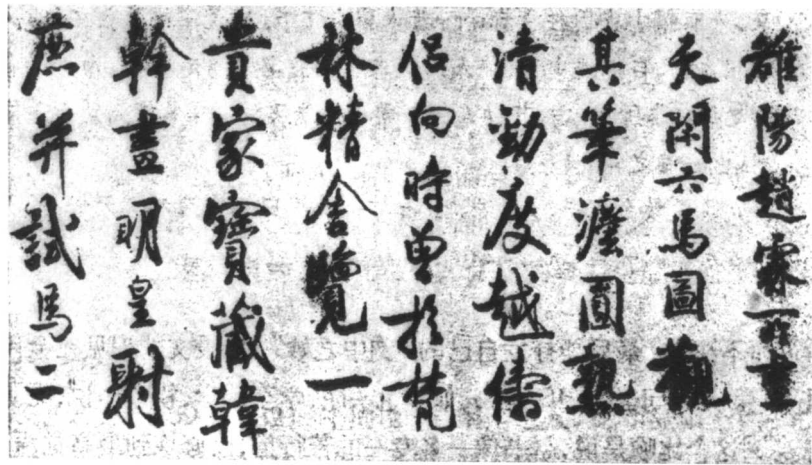 雄陽趙霖所畫
天閑六馬圖觀
其筆蹟圓熟
清勁度越儔
侶向時曾於梵
林精舍覽一
貴家寶藏韓
幹畫明皇射
鹿并試馬二